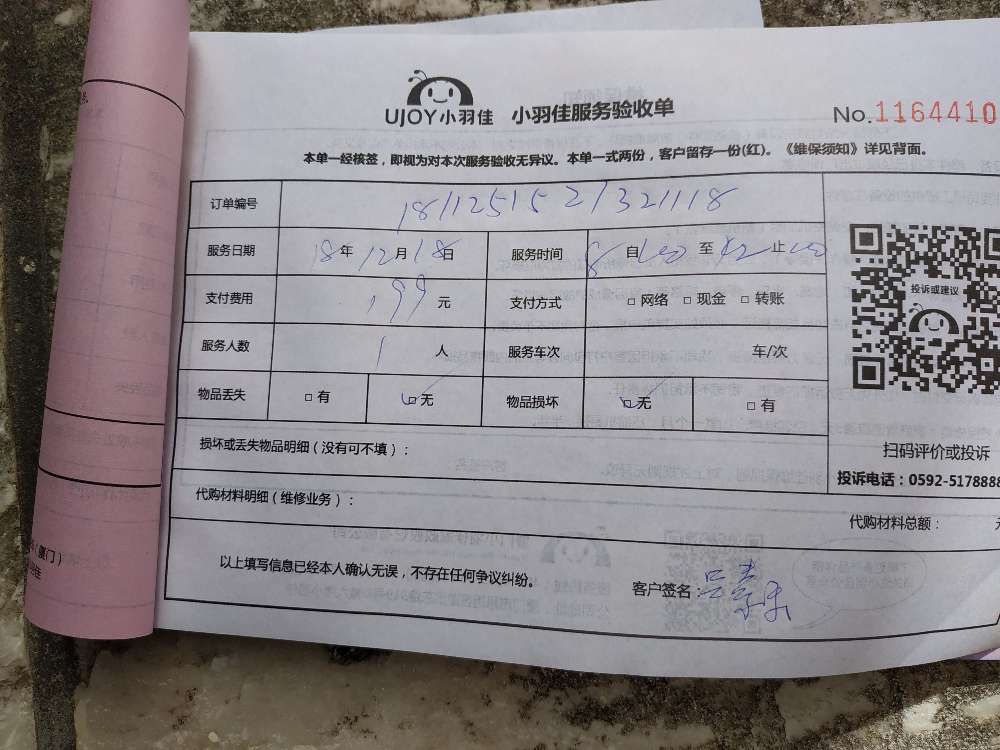 UJOY小羽佳 小羽佳服务验收单
No.1164410
本单一经核签，即视为对本次服务验收无异议。本单一式两份，客户留存一份(红)。《维保须知》详见背面。
订单编号 1811251521321118
服务日期 18年12月18日 服务时间 自 至 止
支付费用 199元 支付方式 □网络 □现金 □转账
服务人数 1人 服务车次 车/次
物品丢失 □有 □无 物品损坏 □无 □有
投诉或建议
扫码评价或投诉
投诉电话：0592-5178888
损坏或丢失物品明细（没有可不填）：
代购材料明细（维修业务）：
代购材料总额：
以上填写信息已经本人确认无误，不存在任何争议纠纷。
客户签名：
（厦门）